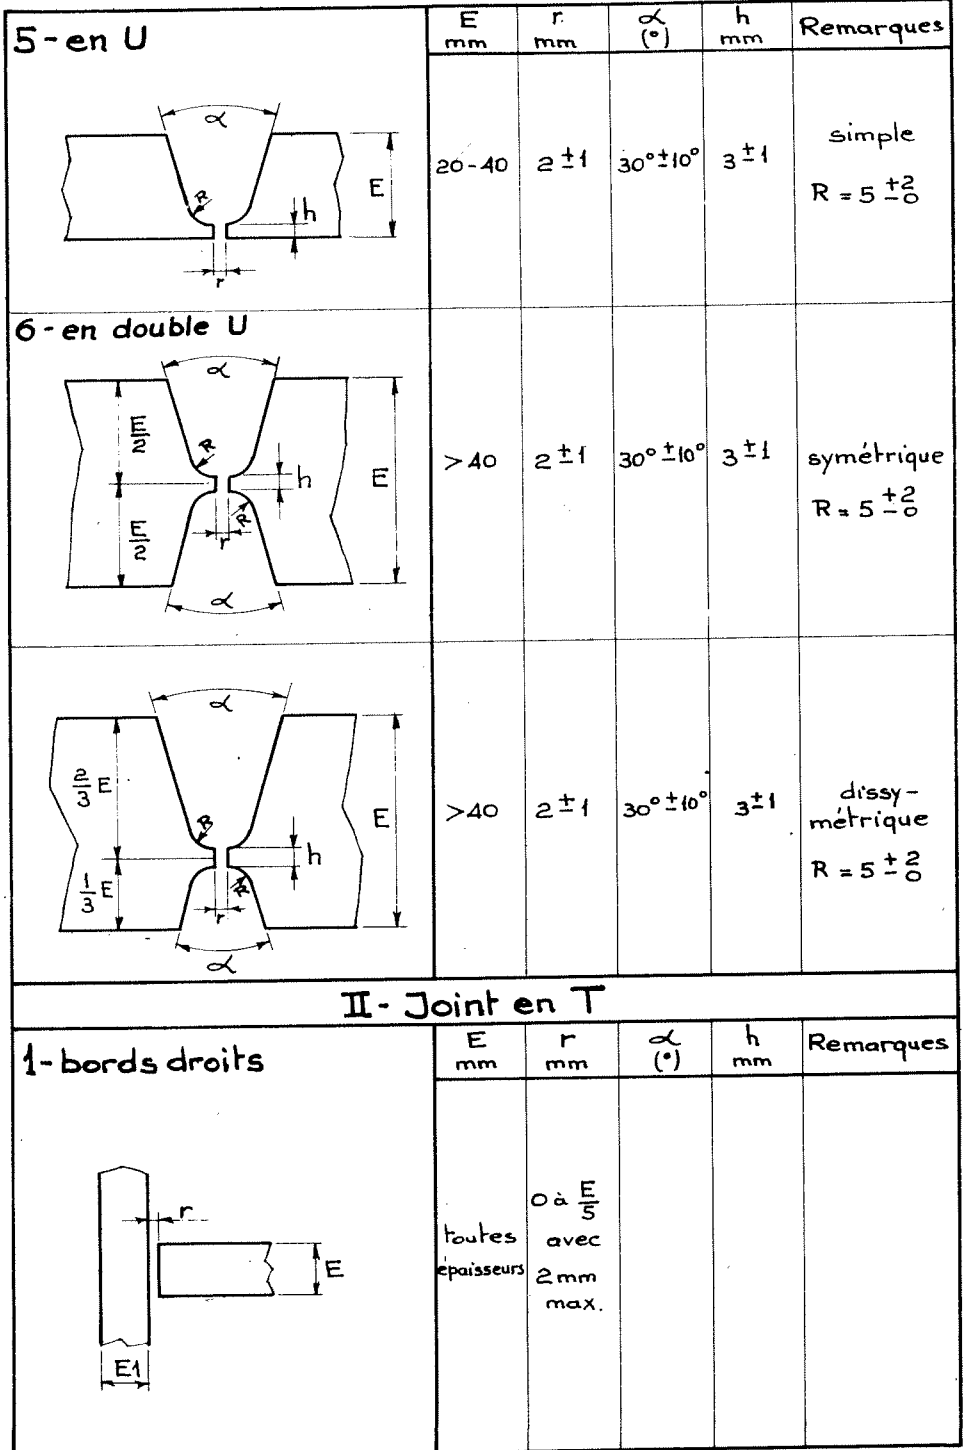 5 - en U
E mm
r. mm
α (°)
h mm
Remarques
α
R
h
E
r
20 - 40
2 ± 1
30° ± 10°
3 ± 1
simple
R = 5 +2 -0
6 - en double U
α
E/2
R
h
E
E/2
R
r
α
> 40
2 ± 1
30° ± 10°
3 ± 1
symétrique
R = 5 +2 -0
α
2/3 E
R
h
E
1/3 E
R
r
α
> 40
2 ± 1
30° ± 10°
3 ± 1
dissy-
métrique
R = 5 +2 -0
II - Joint en T
1 - bords droits
E mm
r mm
α (°)
h mm
Remarques
r
E
E1
toutes
épaisseurs
0 à E/5
avec
2 mm
max.